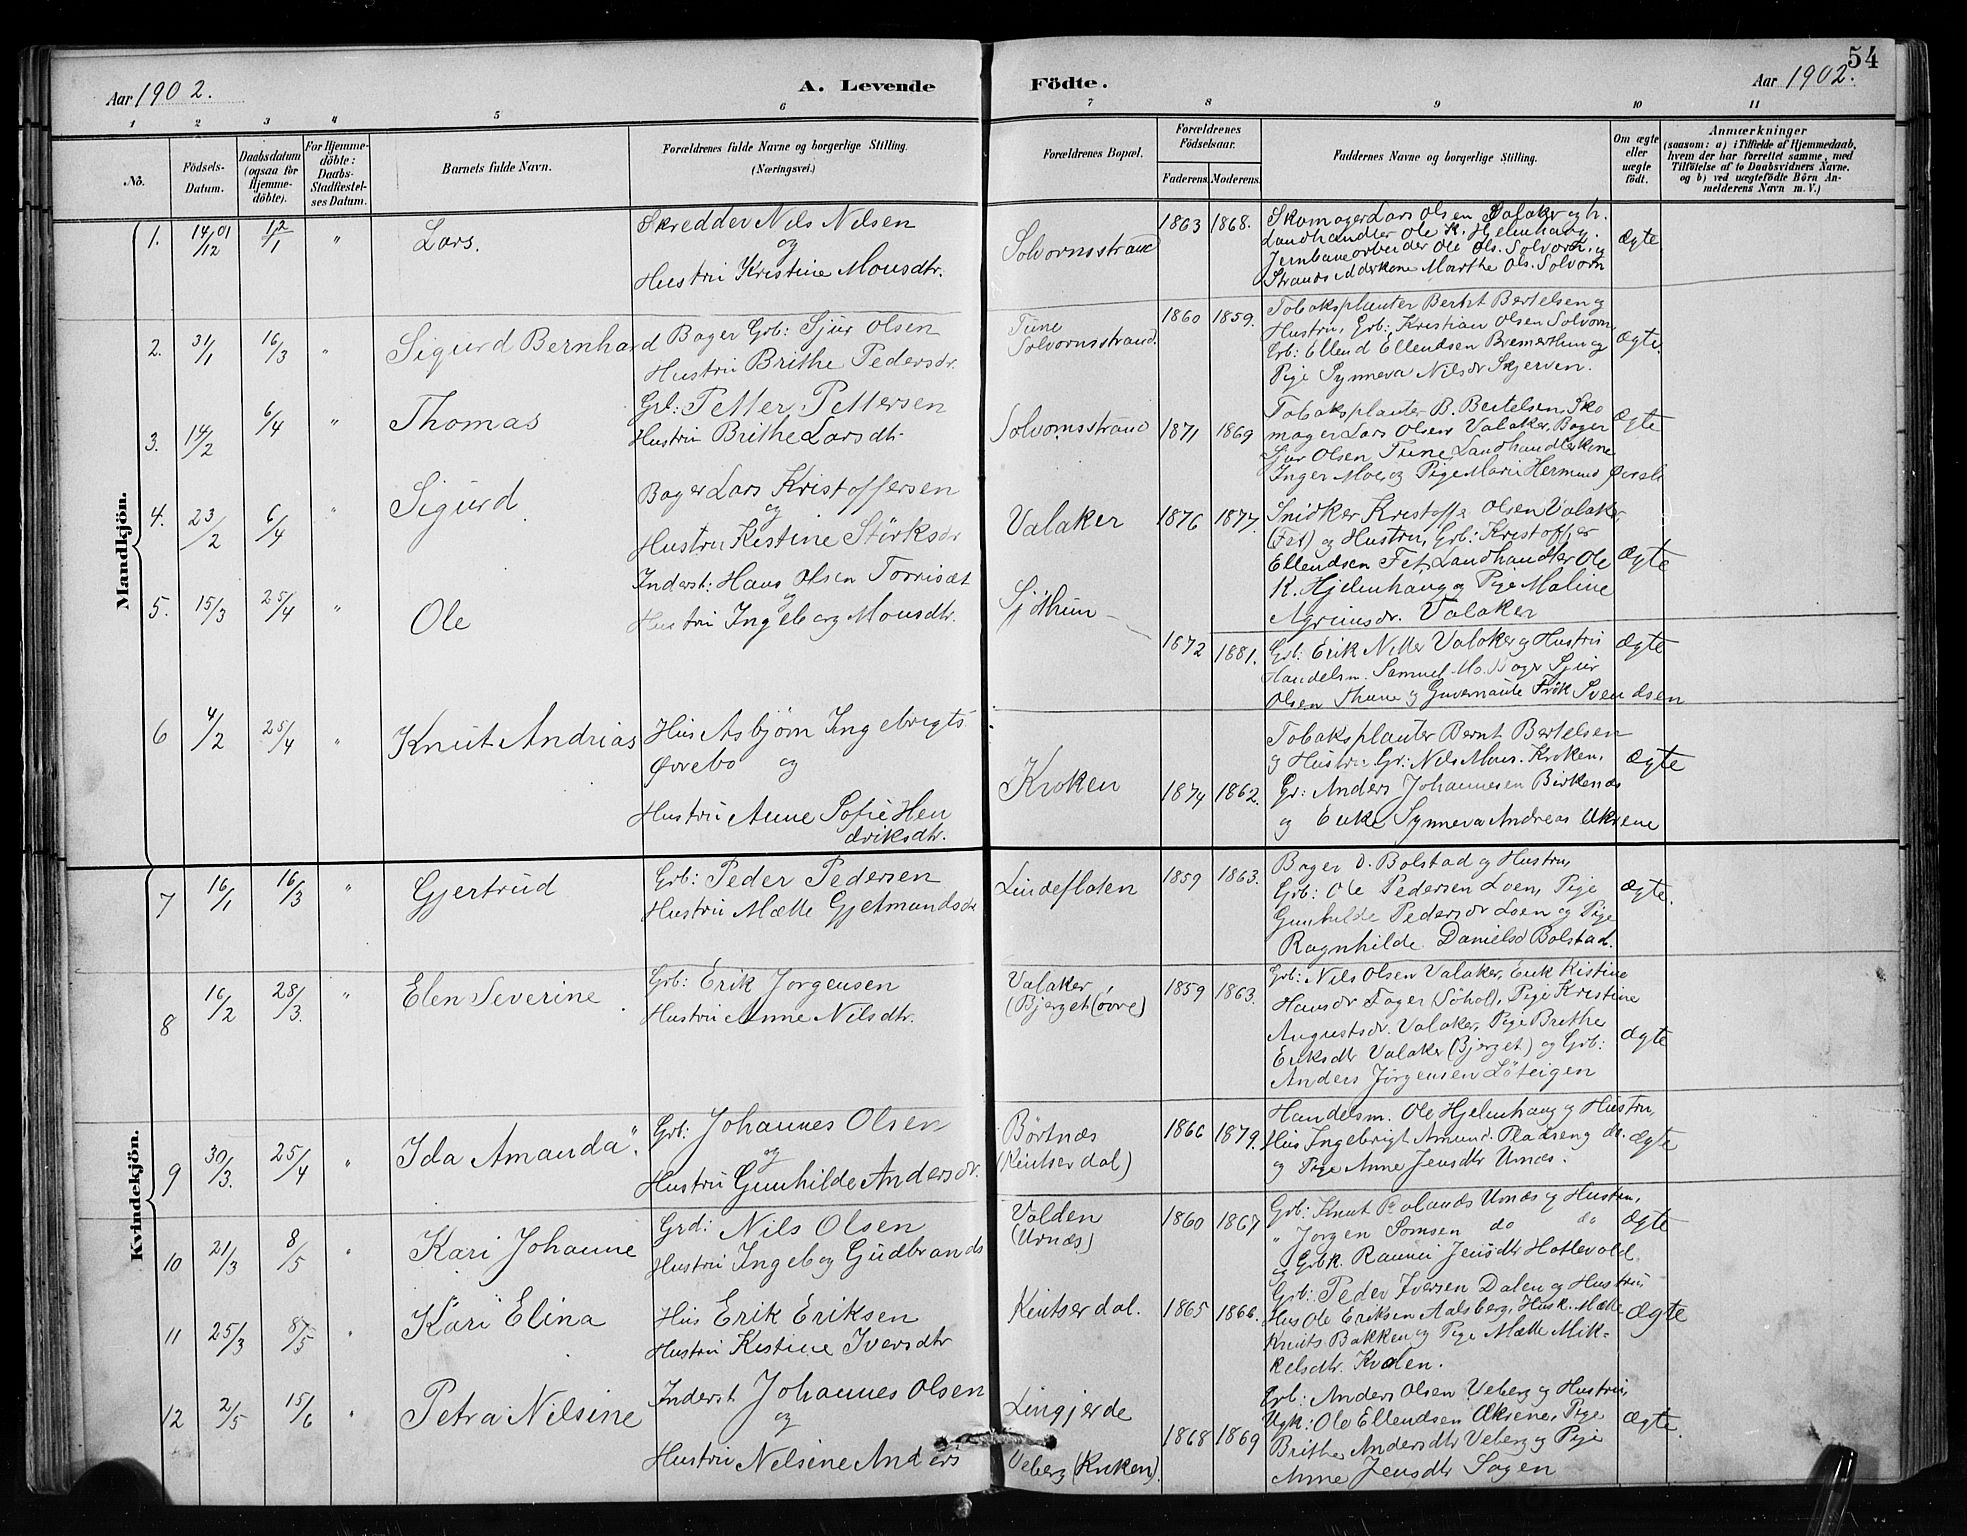 54
Aar 1902.
A. Levende
Födte.
Aar 1902.
1 2 3 " 5 6 7 8 9 10 11
No.
Födsels-
Datum.
Daabsdatum
(ogsaa for
Hjemme-
döbte).
For Hjemme-
döbte:
Daabs-
Stadfæstel-
ses Datum.
Barnets fulde Navn.
Forældrenes fulde Navne og borgerlige Stilling.
(Næringsvei.)
Forældrenes Bopæl.
Forældrenes
Födselsaar.
Faderens. Moderens.
Faddernes Navne og borgerlige Stilling.
Om ægte
eller
uægte
födt.
Anmærkninger
(saasom: a) i Tilfælde af Hjemmedaab,
hvem der har forrettet samme, med
Tilföielse af to Daabsvidners Navne.
og b) ved uægtefödte Börn An-
melderens Navn m. V.)
Mandkjön.
1. 14/12 01 12/1 " Lars.
Skredder Nils Nilsen
og
Hustru Kristine Monsdtr.
Solvornsstrand
1863 1868.
Skomager Lars Olsen Valaker og h.
Landhandler Ole K. Hjelmhaug.
Jernbanearbeider Ole Ols. Solvorn og
Strandsidderkone Marthe Ols. Solvorn
Ægte
2. 31/1 16/3 " Sigurd Bernhard
Bager Grb: Sjur Olsen
Hustru Brithe Pedersdr.
Tune
Solvornsstrand.
1860 1859.
Tobaksplanter Bernt Bertelsen og
Hustru, Grb: Kristian Olsen Solvorn,
Grb: Ellend Ellendsen Bremerthun og
Pige Synneva Nilsdr Skjerven.
Ægte.
3. 14/2 6/4 " Thomas
Grb: Petter Pettersen
Hustru Brithe Larsdtr.
Solvornsstrand
1871 1869
Tobaksplanter B. Bertelsen, Sko
mager Lars Olsen Valaker, Bager
Sjur Olsen Tune Landhandlerkone
Inger Moe og Pige Marie Hermund
Ægte
4. 23/2 6/4 " Sigurd
Bager Lars Kristoffersen
og
Hustru Kistine Störksdr
Valaker
1876 1877.
Snidker Kristoffer Olsen Valaker
(Fet) og Hustru, Grb: Kristoffer
Ellendsen Fet, Landhandler Ole
K. Hjelmhaug og Pige Maline
Agrimsdr. Valaker
Ægte
5. 15/3 25/4 " Ole
Inderst: Hans Olsen
og
Hustru Ingeborg Monsdtr.
Sjöthun
1872 1881.
Grb: Erik Nitter Valaker og Hustru
Handelsm. Samuel M. Bager Sjur
Olsen Thune og Guvernante Frök Svendsen
Ægte
6 4/2 25/4 " Knut Andrias
Hus Asbjörn Ingebrigts
Øvrebø og
Hustru Anne Sofie Hen
driksdtr.
Kroken
1874 1862.
Tobaksplanter Bernt Bertelsen
og Hustru Gr: Nils Mons. Kroken,
Gr: Anders Johannesen Birkenæs
og Enke Synneva Andreas Ækrene
Ægte
Kvindekjön.
7 16/1 16/3 " Gjertrud
Grb: Peder Pedersen
Hustru Mætte Gjetmundsdr
Lindefloten
1859 1863.
Bager D. Bolstad og Hustru,
Grb: Ole Pedersen Loen, Pige
Gunhilde Pedersdr Loen og Pige
Ragnhilde Danielsd Bolstad.
Ægte.
8 16/2 28/3. " Elen Severine
Grb: Erik Jorgensen
Hustru Anne Nilsdtr.
Valaker
(Bjerget (övre)
1859 1863.
Grb: Nils Olsen Valaker, Enk Kistine
Hansdr Fager (Söhol), Pige Kristine
Augustsdr. Valaker, Pige Brithe
Eriksdtr Valaker (Bjerget) og Grb:
Anders Jörgensen Löteigen
Ægte
9 30/3. 25/4 " Ida Amanda.
Grb: Johannes Olsen
og
Hustru Gunhilde Andersdr.
Børtnæs
(Kintserdal)
1866 1879.
Handelsm. Ole Hjelmhaug og Hustru,
Hus Ingebrigt Amund. Pladseng do.
og Pige Anne Jensdtr Urnæs.
Ægte
10 21/3 8/5 " Kari Johanne
Grd: Nils Olsen
Hustru Ingeb og Gudbrands
Valden
(Urnæs)
1860 1867
Grb: Knut Rolands Urnæs og Hustru,
" Jorgen Somsen do do
og Grbk. Rannei Jensdtr Hottevold.
Ægte
11 25/3 8/5 " Kari Elina
Hus Erik Eriksen
Hustru Kistine Iversdtr
Kintserdal.
1865 1866.
Grb: Peder Iversen Dalen og Hustru,
Hus Ole Eriksen Aalsberg, Husk. Mætte
Knuts Bakken og Pige Mætte Mik-
kelsdtr. Kvalen.
Ægte
12 2/5 15/6 " Petra Nilsine
Inderst Johannes Olsen
og
Hustru Nilsine Anders
Lingjerde
Veberg (Kroken).
1868 1869
Grb: Anders Olsen Veberg og Hustru,
Ugk: Ole Ellendsen Ækrene, Pige
Brithe Andersdtr Veberg og Pige
Anne Jensdtr Sagen
Ægte.